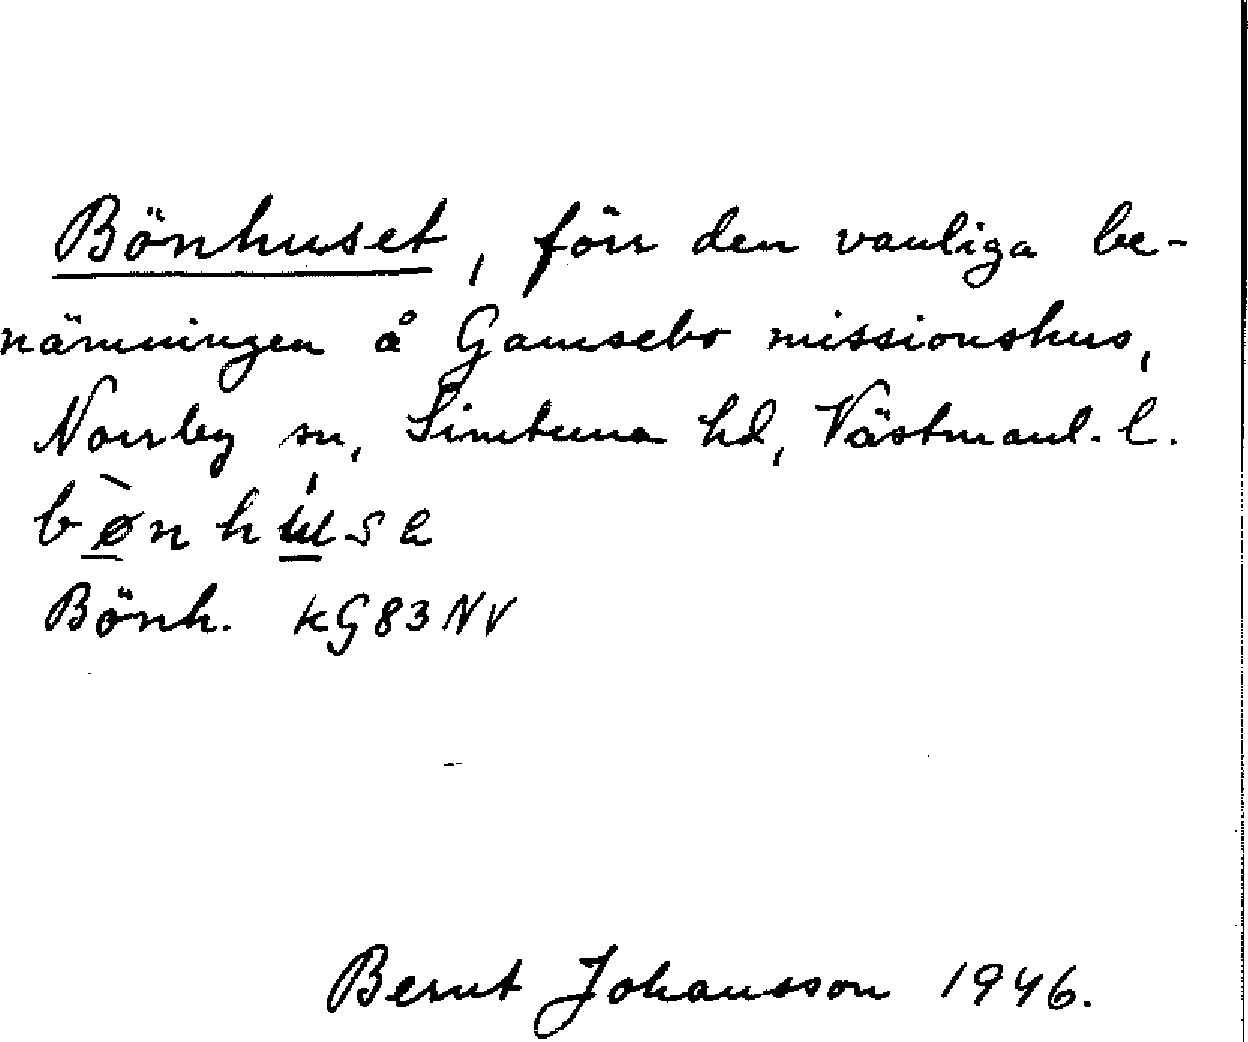 Bönhuset, förr den vanliga be-
nämningen å Gamsebo missionshus,
Norrby sn, Simtuna hd, Västmanl. l.
Bönh. kG83NV
Bernt Johansson 1946.